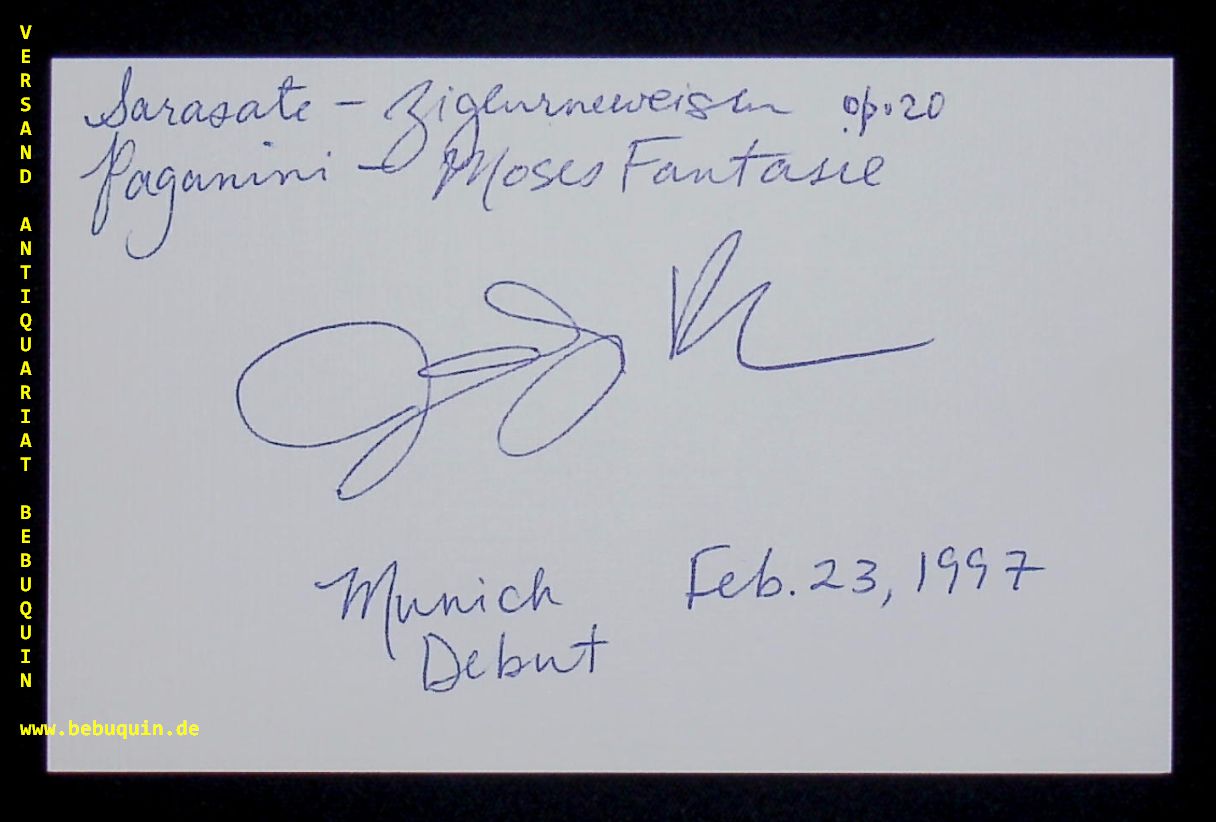 Sarasate – Zigeurneweisen op. 20
Paganini – Moses Fantasie
Munich Feb. 23, 1997
Debut
VERSAND ANTIQUARIAT BEBUQUIN
www.bebuquin.de